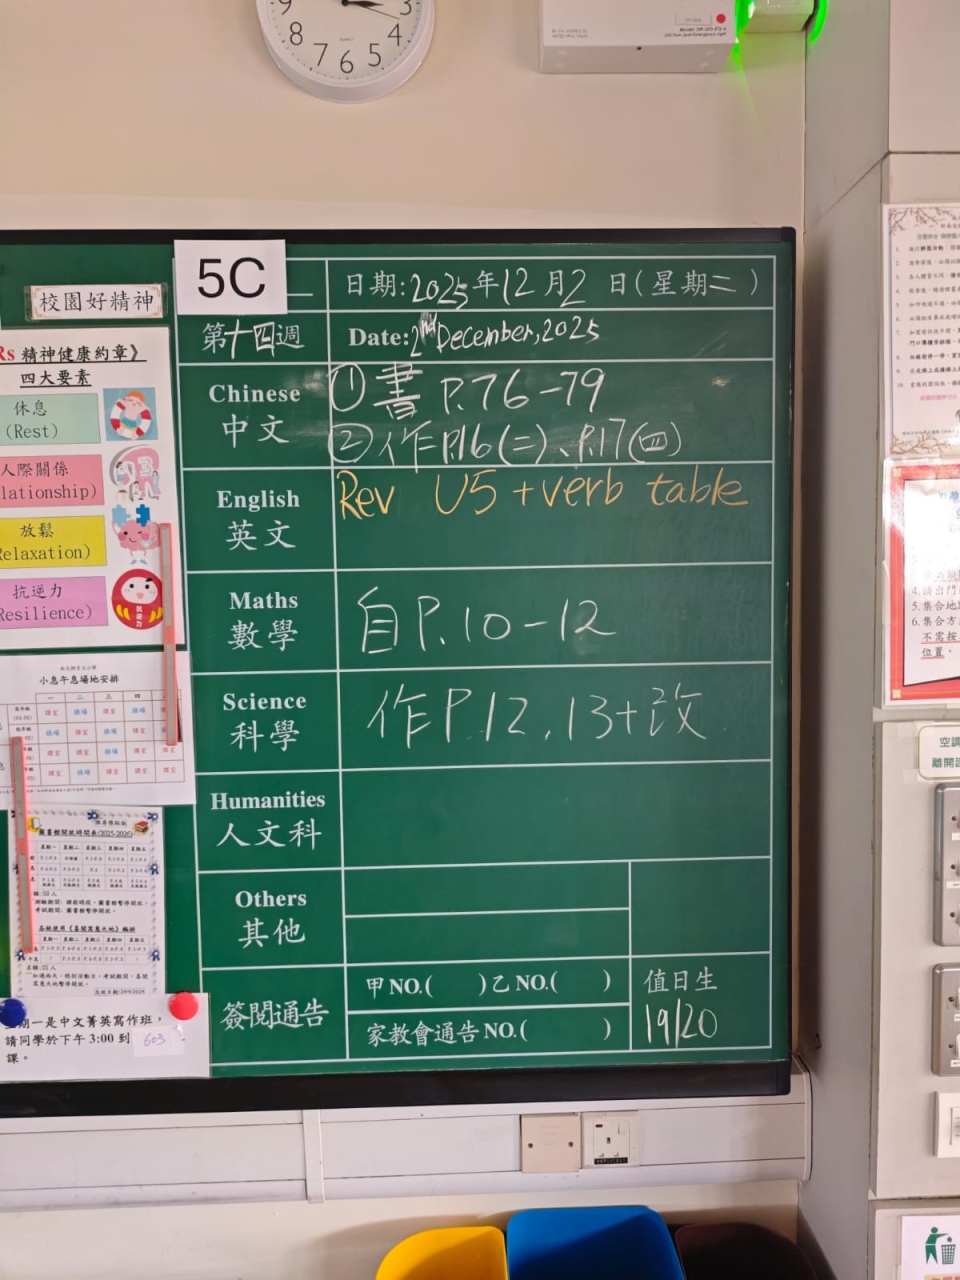 9
3
8
4
7
6
5
5C
日期:2025年12月2日(星期二)
第十四週
Date:2nd December,2025
Chinese
中文
①書 P.76-79
②作P.16(二)、P.17(四)
English
英文
Rev U5 + verb table
Maths
數學
自P.10-12
Science
科學
作P.12,13+改
Humanities
人文科
Others
其他
簽閱通告
甲NO.( )乙NO.( )
家教會通告NO.( )
值日生
19/20
校園好精神
Rs 精神健康約章》
四大要素
休息
(Rest)
人際關係
lationship)
放鬆
Relaxation)
抗逆力
Resilience)
小息午息場地安排
一 二 三 四
圖書館開放時間表(2025-2026)
星期一 星期二 星期三 星期四 星期五
期一是中文菁英寫作班，
請同學於下午 3:00 到 603
課。
4.請出門
5.集合地
6.集合方
不需按
位置。
空調
離開課